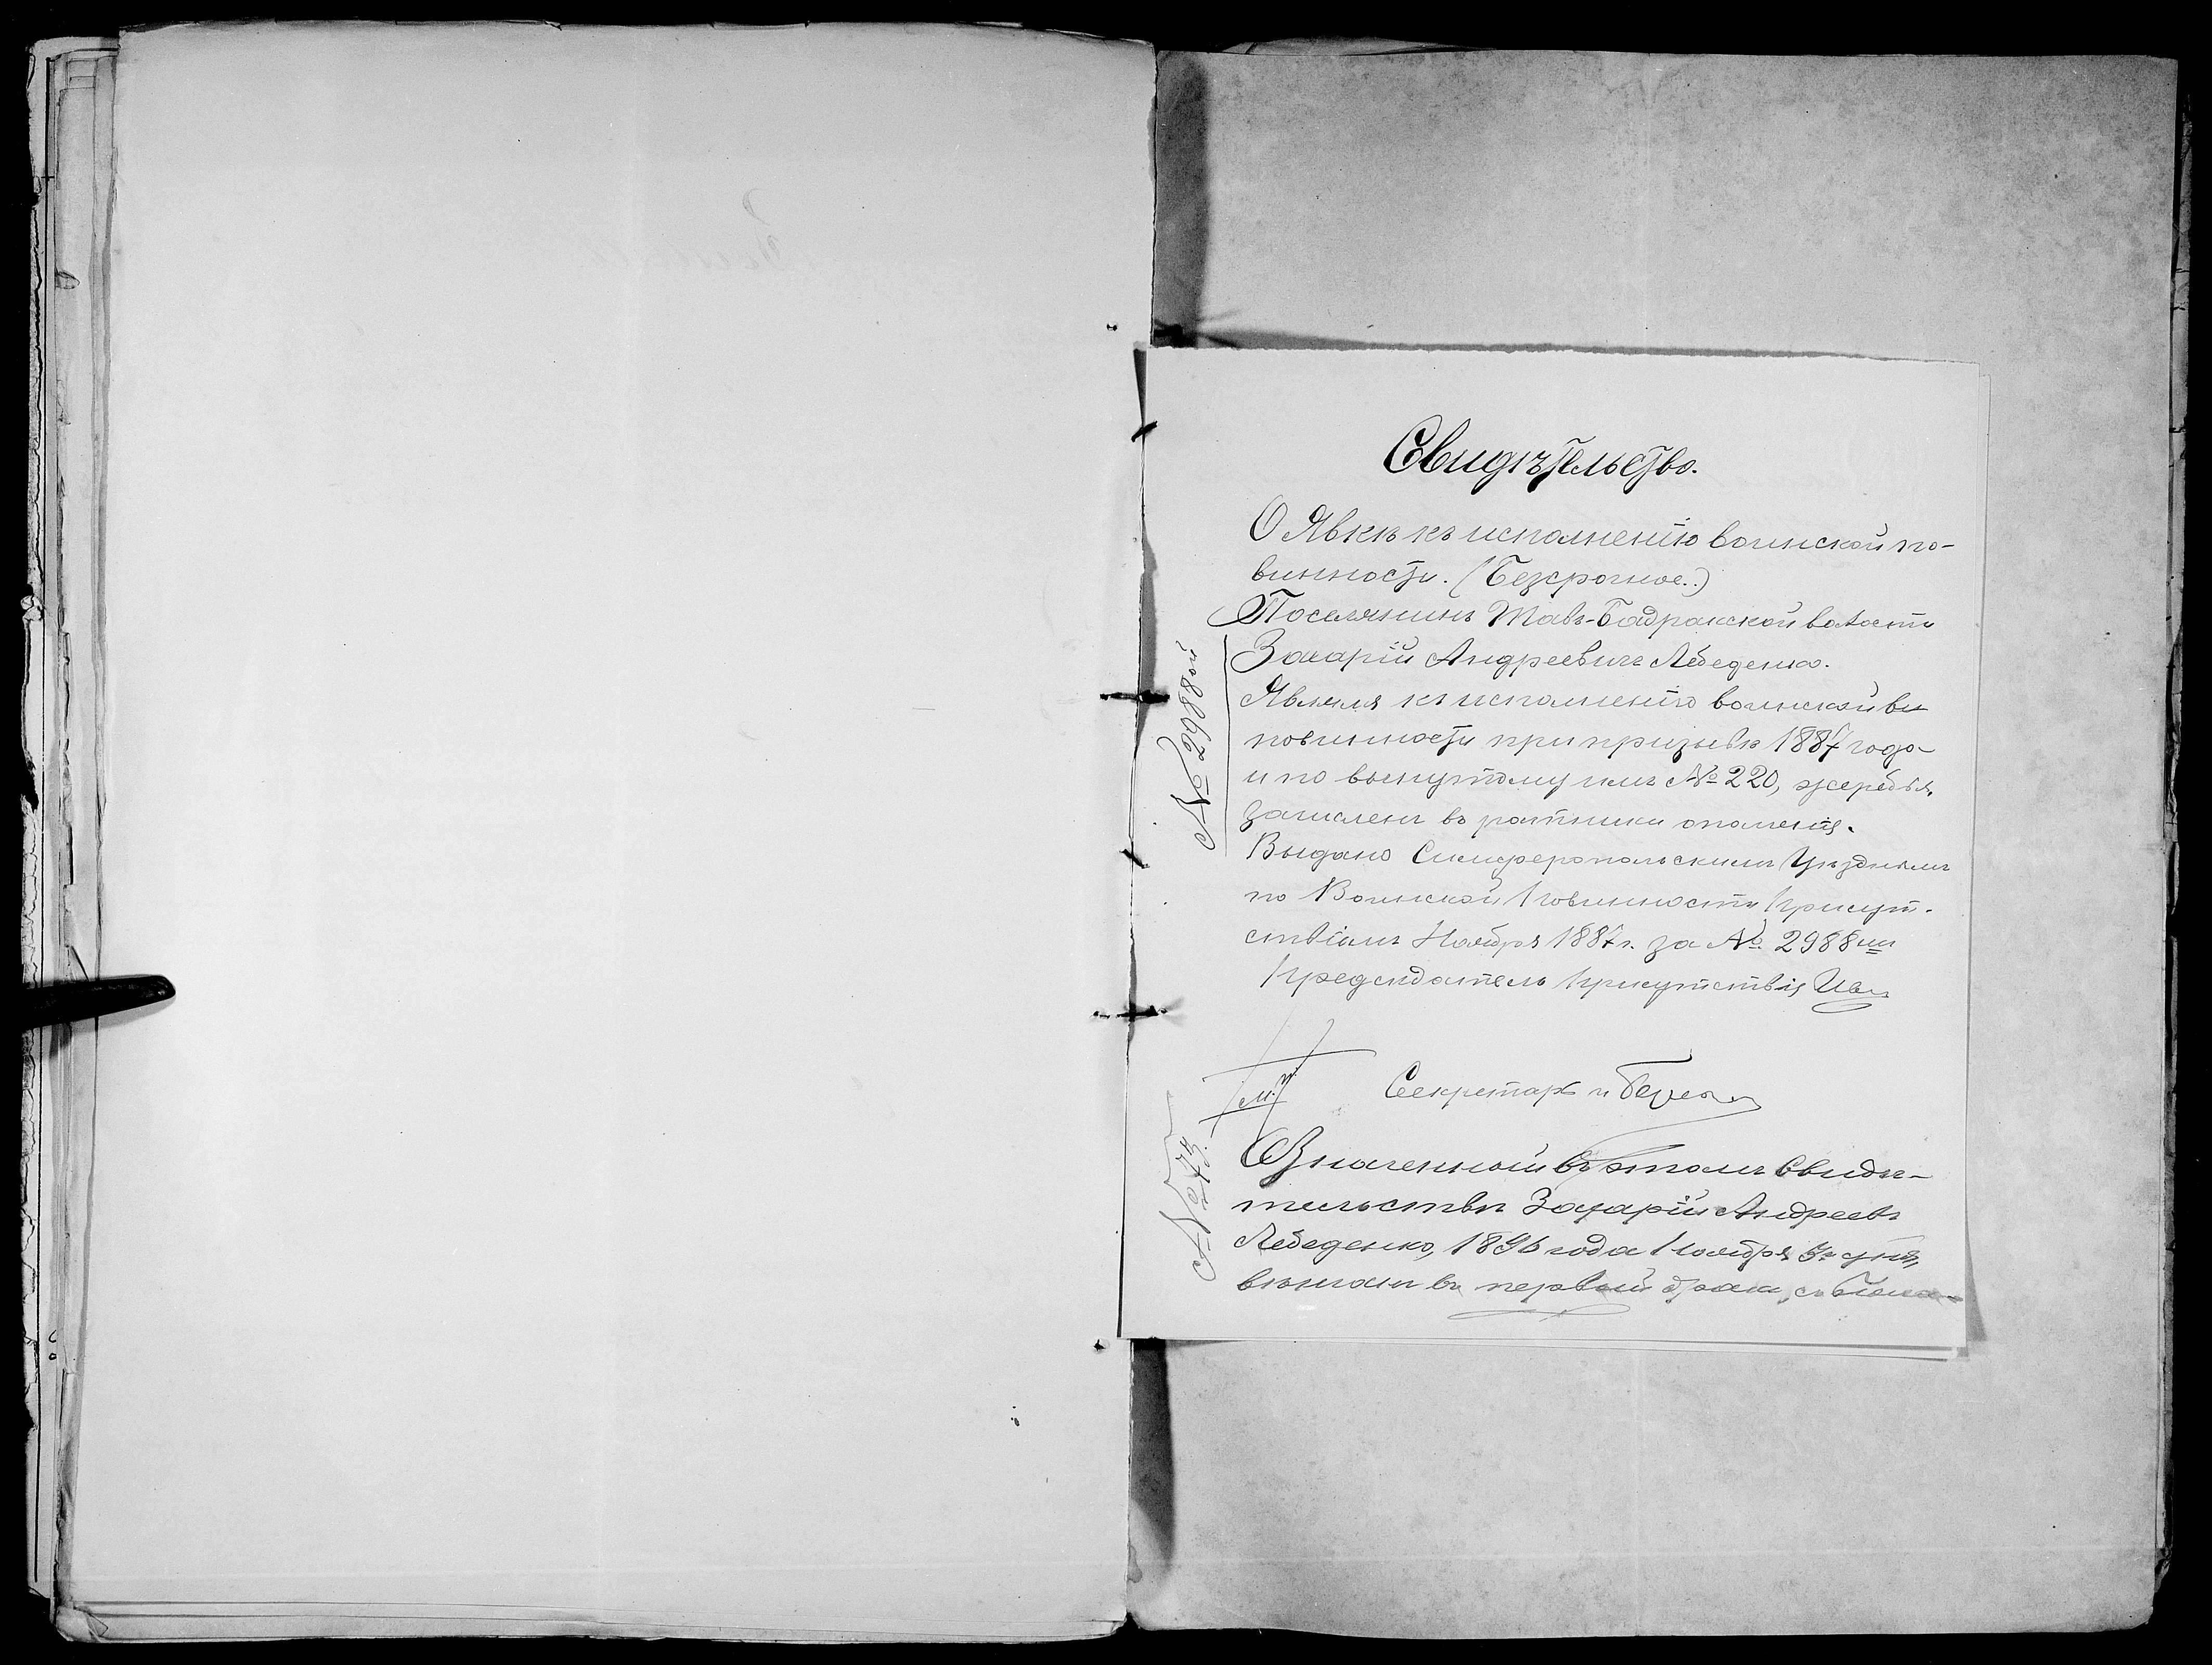 Свидѣтельство.
О Явкѣ къ исполненію воинской по-
винности. (Безсрочное.)
Поселянинъ Тавъ-Бадракской волости
Захарій Андреевичъ Лебеденко.
Являлся къ исполненію воинской ви
повинности при призывѣ 1887 года
и по вынутому имъ № 220, жеребья,
зачисленъ въ ратники ополченія.
Выдано Симферопольскимъ Уѣзднымъ
по Воинской Повинности Присут-
ствіемъ Ноября 1887 г. за № 2988мъ
Предсѣдатель Присутствія
№ 2988ой
М.П.
Секретарь
Означенный въ этомъ Свидѣ-
тельствѣ Захарій Андреевъ
Лебеденко, 1896 года Ноября 3го дня,
вѣнчанъ въ первый бракъ, съ